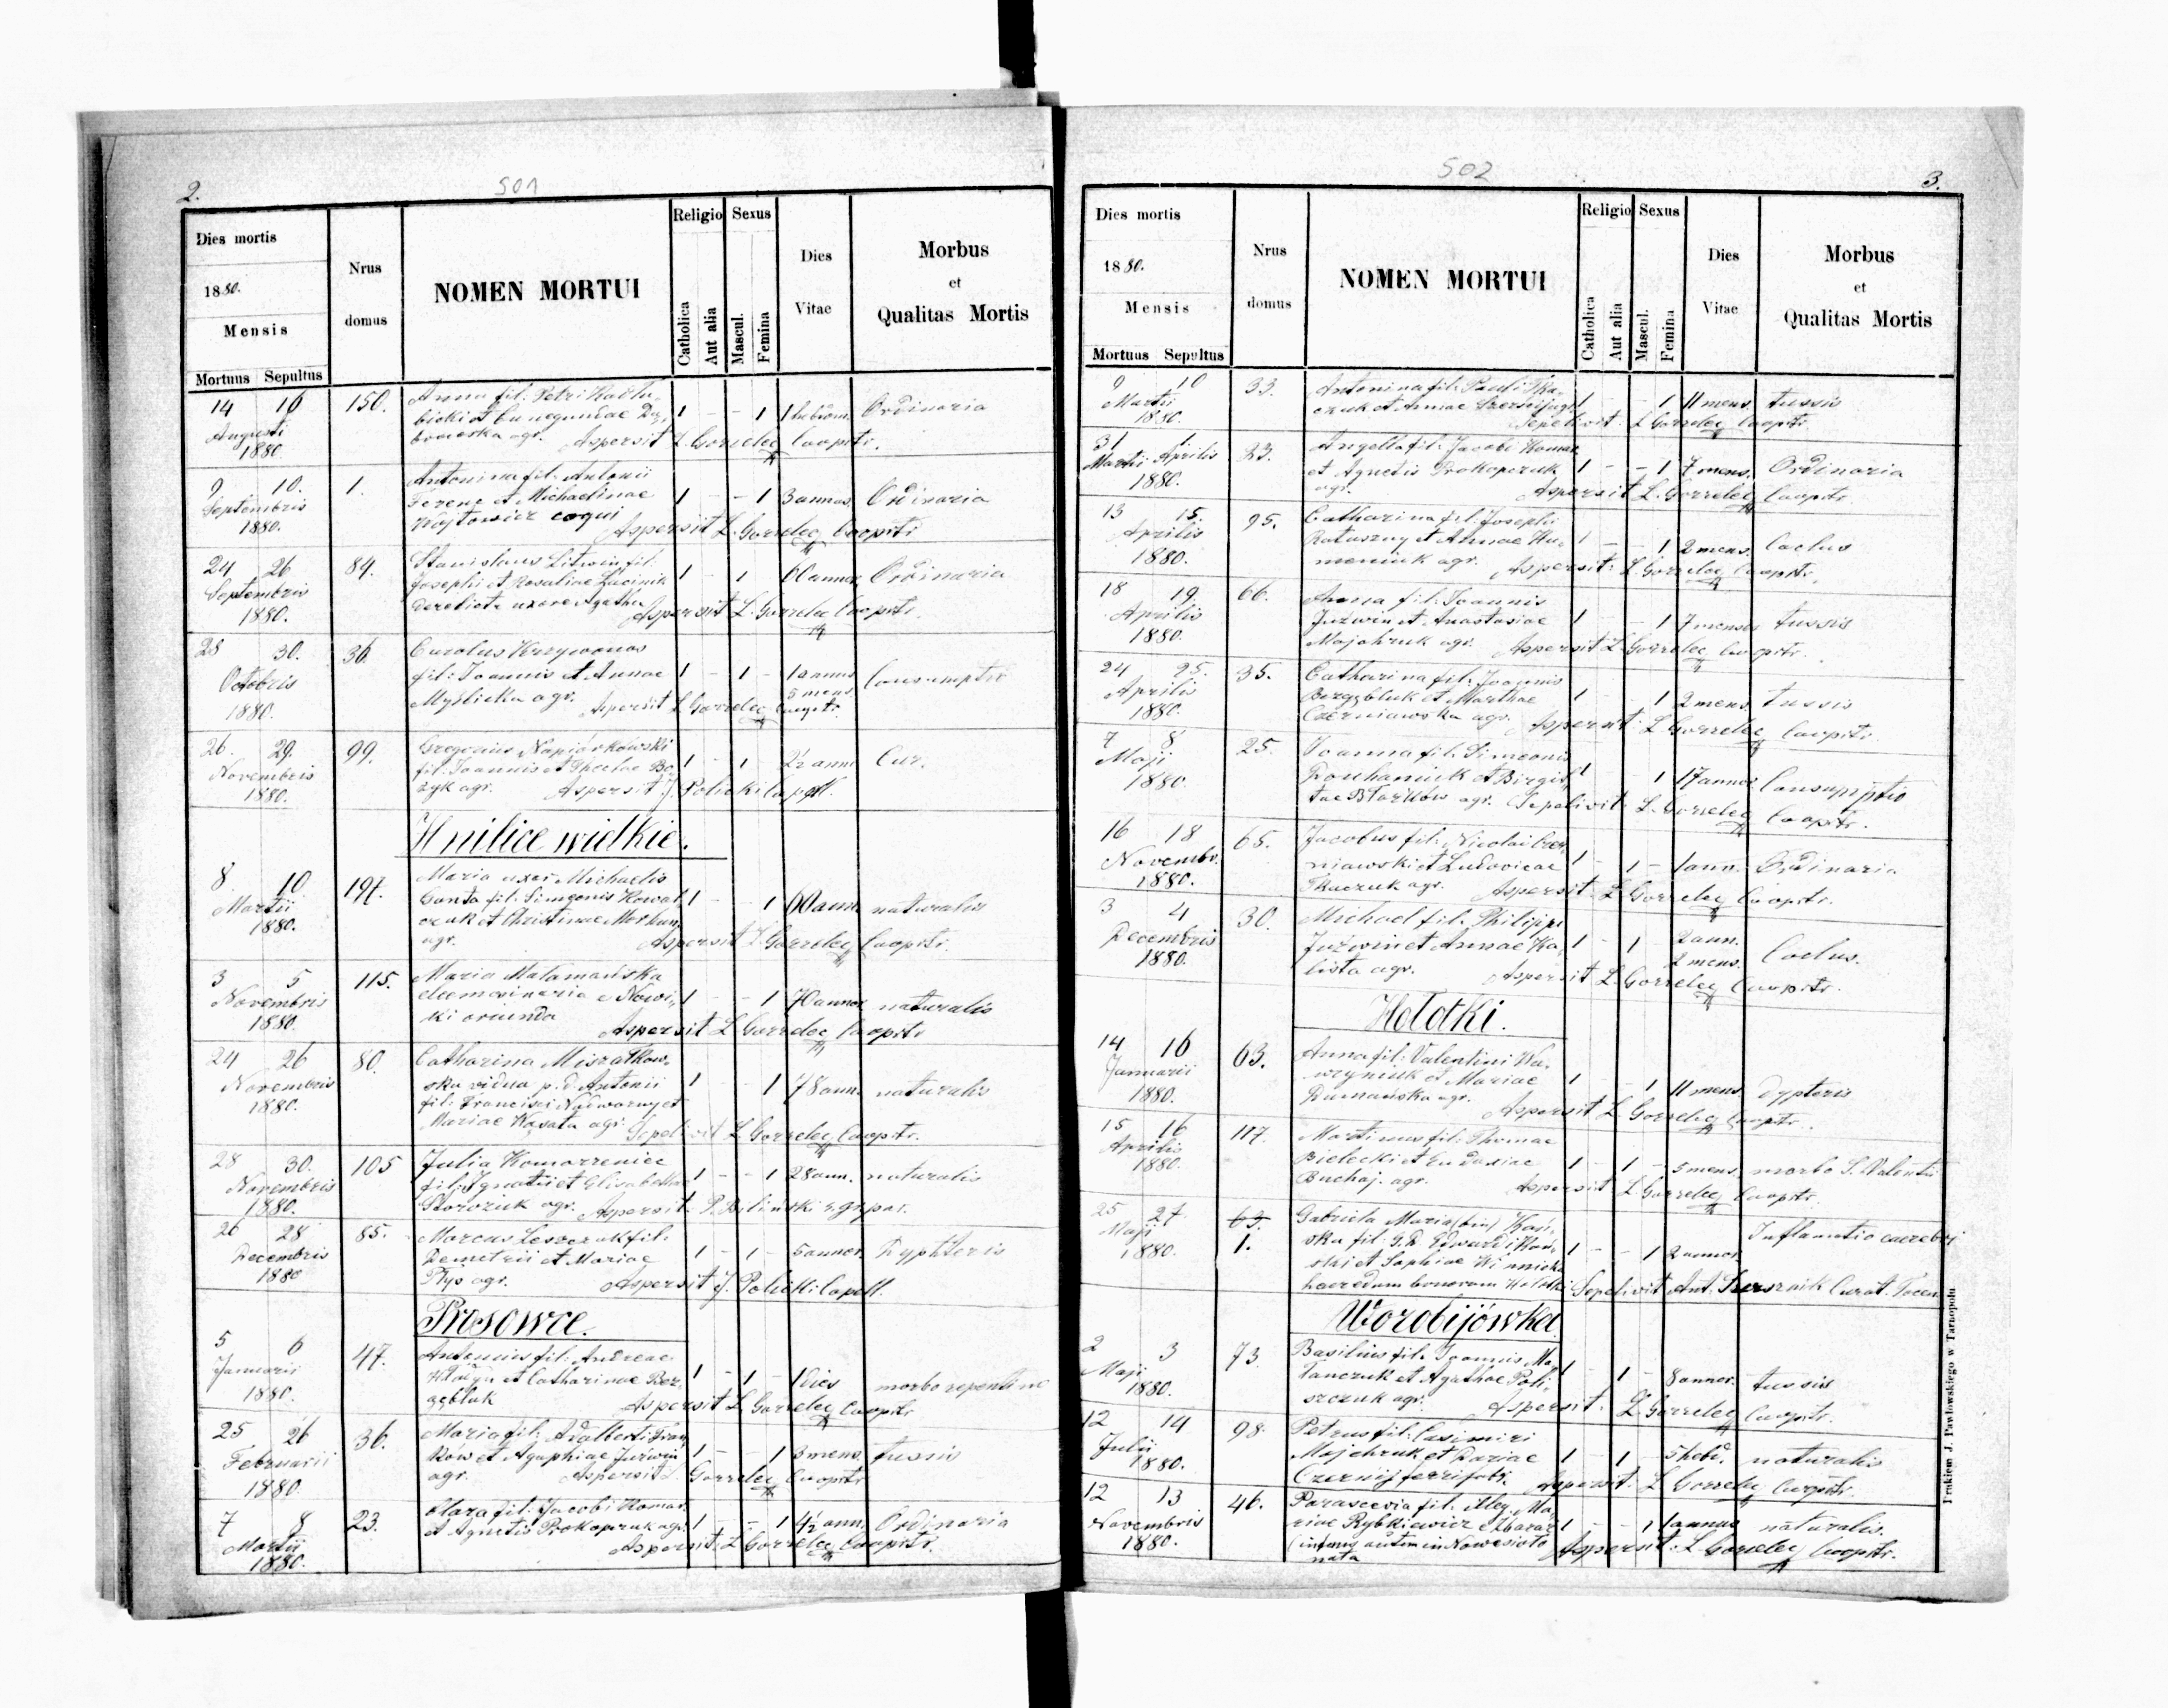 2.
501
Dies mortis
1880.
Mensis
Mortuus Sepultus
Nrus domus
NOMEN MORTUI
Religio
Catholica
Aut alia
Sexus
Mascul.
Femina
Dies Vitae
Morbus
et
Qualitas Mortis
14 16 150. Anna fil: Petri
Augusti et Cunegundae 1 - - 1 1 Ordinaria
1880. agr. Aspersit L. Gorzelec Cooptr.
9 10. 1. Antonina fil: Antonii
Septembris Ferenc et Michaelinae 1 - - 1 3 annos. Ordinaria
1880. Wojtowicz coqui Aspersit L. Gorzelec Cooptr
24 26 84. Stanislaus Litwin fil.
Septembris Josephi et Rosaliae 1 - 1 60 annos Ordinaria
1880. derelicta uxore Agatha Aspersit L. Gorzelec Cooptr.
28 30. 36. Carolus Krzywonos
Octobris fil: Joannis et Annae 1 - 1 - 1 annus 5 mens. Consumptio
1880. Myslicka agr. Aspersit L. Gorzelec Cooptr.
26. 29. 99. Gregorius Napiórkowski
Novembris fil: Joannis et 1 - 1 2½ ann.
1880. agr. Aspersit J. Policki Capell.
Hnilice wielkie.
8 10 197. Maria uxor Michaelis
Martii fil: Simeonis Kowal 1 - - 1 60 ann. naturalis
1880. czuk et Christinae
agr. Aspersit L. Gorzelec Cooptr.
3 5 115. Maria
Novembris eleemosinaria e Nowi 1 - - 1 70 annos naturalis
1880. ki oriunda Aspersit L. Gorzelec Cooptr
24 26 80. Catharina
Novembris ska vidua p. d. Antonii 1 - - 1 78 ann. naturalis
1880. fil: Francisci Nadworny et
Mariae agr. Sepelivit L. Gorzelec Cooptr.
28 30. 105 Julia Komarzeniec
Novembris fil: Ignatii et Elisabethae 1 - - 1 28 ann. naturalis
1880. agr. Aspersit P. Biliński
26 28 85. Marcus Leszczuk fil.
Decembris Demetrii et Mariae 1 - 1 - 5 annor. Dyphteris
1880 agr. Aspersit J. Policki Capell.
Prosowce.
5 6 47. Antonius fil: Andreae
Januarii et Catharinae Ber- 1 - 1 - 1 dies morbo repentino
1880. Aspersit L. Gorzelec Cooptr
25 26 36. Maria fil: Adalberti
Februarii ków et Agaphiae Juzwin 1 - - 1 3 mens. tussis
1880. agr. Aspersit L. Gorzelec Cooptr
7 8 23. Clara fil: Jacobi Komar.
Martii et Agnetis Prokopczuk agr. 1 - - 1 4½ ann. Ordinaria
1880. Aspersit L. Gorzelec Cooptr.
502
3.
Dies mortis
1880.
Mensis
Mortuus Sepultus
Nrus domus
NOMEN MORTUI
Religio
Catholica
Aut alia
Sexus
Mascul.
Femina
Dies Vitae
Morbus
et
Qualitas Mortis
9 10 33. Antonina fil: Pauli Tka-
Martii czuk et Annae 1 - - 1 11 mens. tussis
1880. Sepelivit L. Gorzelec Cooptr.
31 1 23. Angella fil: Jacobi Komar
Martii Aprilis et Agnetis Prokopczuk 1 - - 1 7 mens. Ordinaria
1880. agr. Aspersit L. Gorzelec Cooptr.
13 15. 95. Catharina fil: Josephi
Aprilis Ratuszny et Annae 1 - 1 2 mens. Coelus
1880. agr. Aspersit: L. Gorzelec Cooptr.
18 19. 66. Anna fil: Joannis
Aprilis Juzwin et Anastasiae 1 - 1 7 menses tussis
1880. Majchruk agr. Aspersit L. Gorzelec Cooptr.
24 25. 35. Catharina fil: Joannis
Aprilis et Marthae 1 - - 1 2 mens. tussis
1880. Czerniawska agr. Aspersit L. Gorzelec Cooptr.
7 8 25. Joanna fil: Simeonis
Maji et Birgit- 1 1 17 annos Consumptio
1880. tae agr. Sepelivit L. Gorzelec Cooptr.
16 18 65. Jacobus fil: Nicolai Czer-
Novembr. niawski et Ludovicae 1 - 1 - 1 ann. Ordinaria
1880. Tkaczuk agr. Aspersit: L. Gorzelec Cooptr.
3 4 30. Michael fil: Philippi
Decembris Juzwin et Annae Ka- 1 - 1 2 ann. 2 mens. Coelus.
1880. lista agr. Aspersit L. Gorzelec Cooptr.
Hołotki.
14 16 63. Anna fil: Valentini
Januarii et Mariae 1 - - 1 11 mens. Dypteris
1880. agr. Aspersit L. Gorzelec Cooptr.
15 16 117. Martinus fil: Thomae
Aprilis Bielecki et Eudoxiae 1 - 1 - 5 mens. morbo S. Valentii
1880. Buchaj. agr. Aspersit L. Gorzelec Cooptr.
25 27 63. Gabriela Maria (bin)
Maji 1. ska fil: Edwardi 1 - - 1 2 annor. Inflamatio caerebri
1880. ski et Sophiae
haeredum bonorum Hołotki Sepelivit Ant. Curat.
Worobijówka
2 3 73. Basilius fil: Joannis
Maji et Agathae Poli- 1 - 1 - 8 annor. tussis
1880. szczuk agr. Aspersit: L. Gorzelec Cooptr.
12 14 98. Petrus fil: Casimiri
Julii Majchruk et Dariae 1 - 1 - 5 hebd. naturalis
1880. Czernij ferrifabr. Aspersit: L. Gorzelec Cooptr.
12 13 46. Parascevia fil. illeg. Ma-
Novembris riae Rybkiewicz e Zbaraż 1 - - 1 1 annus naturalis.
1880. nata Aspersit: L. Gorzelec Cooptr.
Drukiem J. Pawłowskiego w Tarnopolu